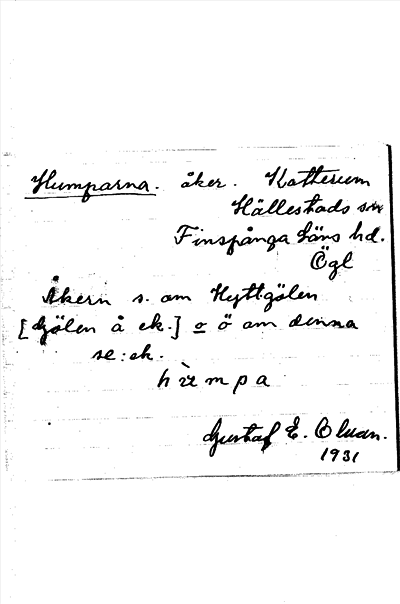 Humparna. åker. Katterum
Hällestads sn
Finspånga läns hd.
Ögl
Åkern s. om Hyttgölen
[Gölen å ek.] o ö om denna
se: ek.
hu᷆mpa
Gustaf E. Olsson.
1931